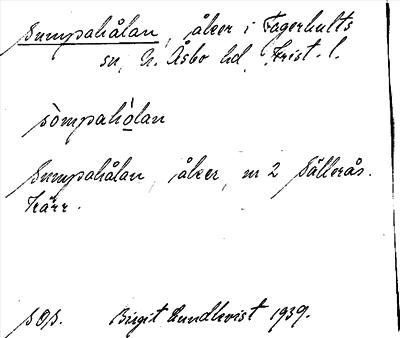 Sumpahålan, åker i Fagerhults
sn, N. Åsbo hd, Krist. l.
sòmpahòlan
Sumpahålan, åker, nr 2 Sällerås.
Kärr.
sOs. Birgit Lundkvist 1939.